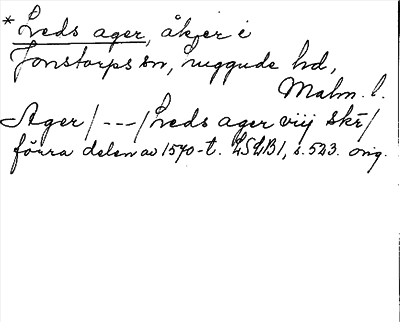 * Leds ager, åker i
Jonstorps sn, Luggude hd,
Malm. l.
Ager /---/ Leds ager viij skē/
förra delen av 1570-t. LSLB1, s. 523. orig.